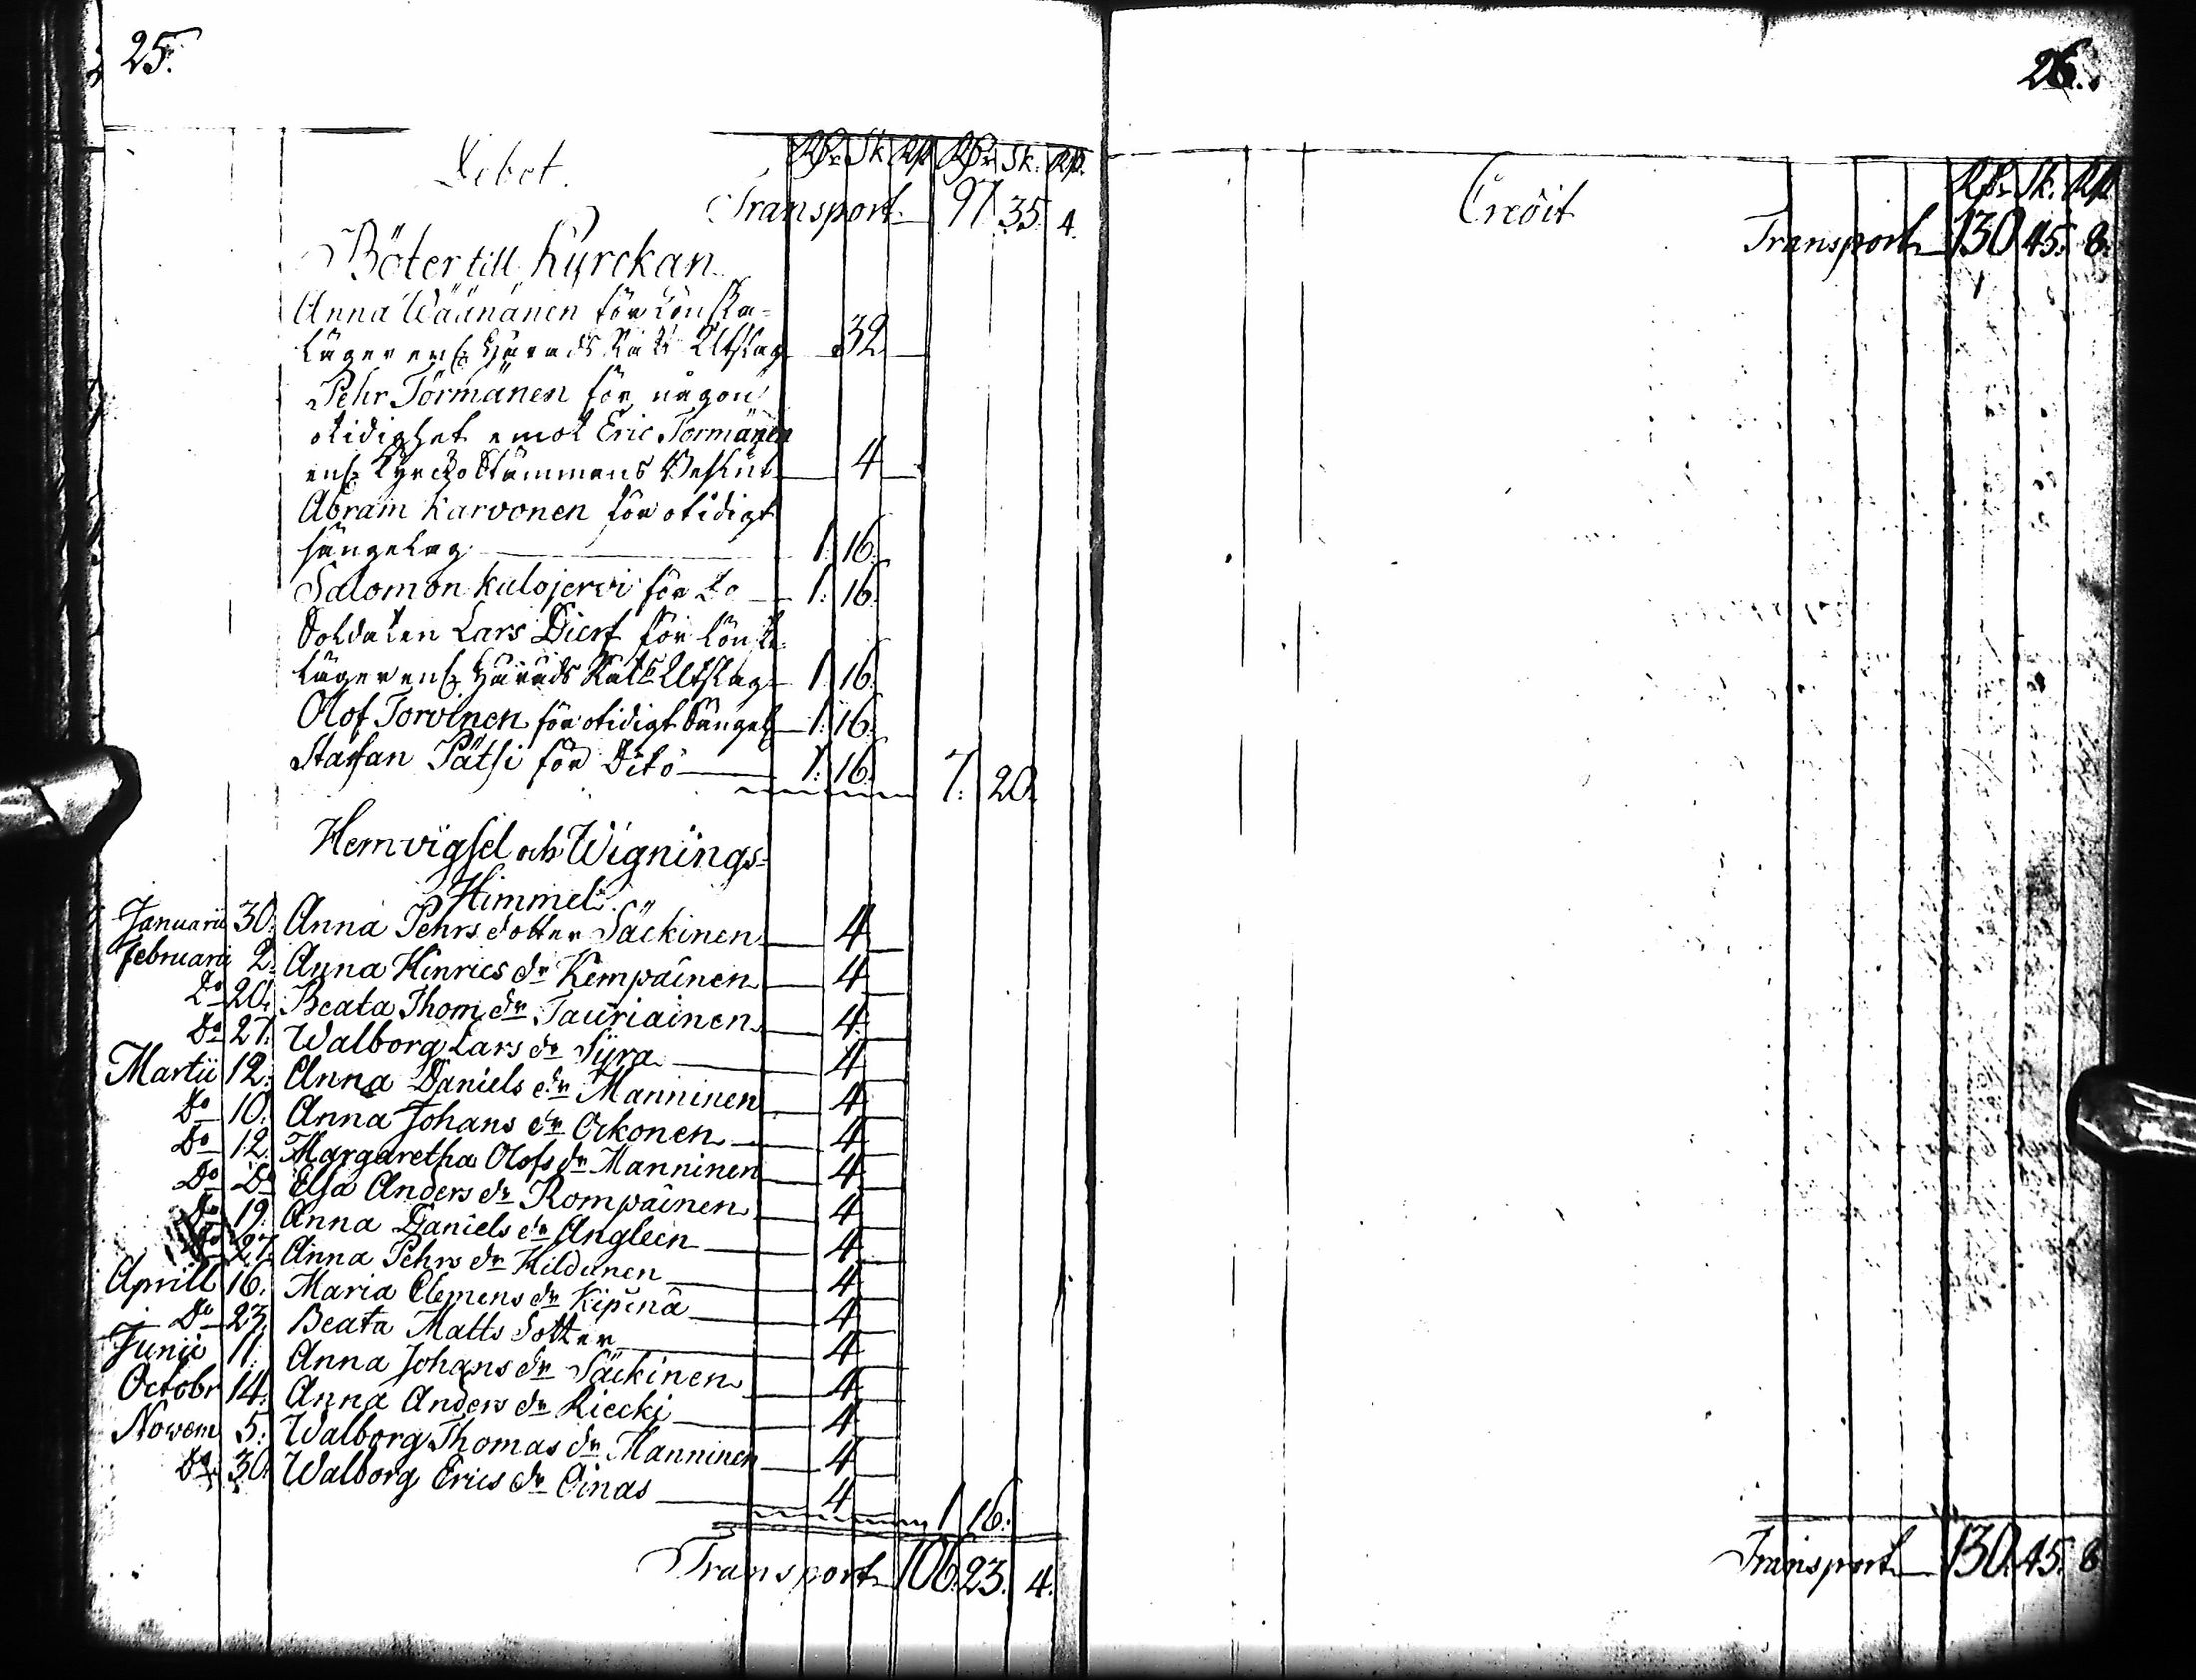 25.
Debet. Rdr Sk. Rp. Rdr Sk. Rp.
Transport 97. 35. 4.
Böter till Kyrckan
Anna Wäänänen för Lönska-
läger enl. Härads Räts Utslag 32
Pehr Törmänen för någon
otidighet emot Eric Törmänen
enl. Kyrckostämmans Beslut 4
Abram Karvonen för otidigt
sängelag 1. 16.
Salomon Kulojervi för Do 1: 16.
Soldaten Lars Dierf för Lönska-
läger enl. Härads Räts Utslag 1. 16.
Olof Torvinen för otidigt Sängel. 1: 16.
Staffan Pätsi för Dito 1: 16. 7: 20.
Hemvigsel och Wignings-
Himmel.
Januarii 30. Anna Pehrs dotter Säckinen 4
Februarii 2. Anna Hinrics dr Kempainen 4
Do 20. Beata Thom. dr Tauriainen 4
Do 27. Walborg Lars dr Syra 4
Martii 12. Anna Daniels dr Manninen 4
Do 10. Anna Johans dr Orkonen 4
Do 12. Margaretha Olofs dr Manninen 4
Do Do Elsa Anders dr Rompainen 4
Do 19. Anna Daniels dr Angleen 4
Do 27. Anna Pehrs dr Hildunen 4
Aprill 16. Maria Clemens dr Kipinä 4
Do 23. Beata Matts Dotter 4
Junii 11. Anna Johans dr Säckinen 4
Octobr 14. Anna Anders dr Riecki 4
Novem 5. Walborg Thomas dr Manninen 4
Do 30. Walborg Erics dr Oinas 4
1 16.
Transport 106. 23. 4.
26.
Credit Rdr Sk. Rp
Transport 130 45. 8.
Transport 130. 45. 8